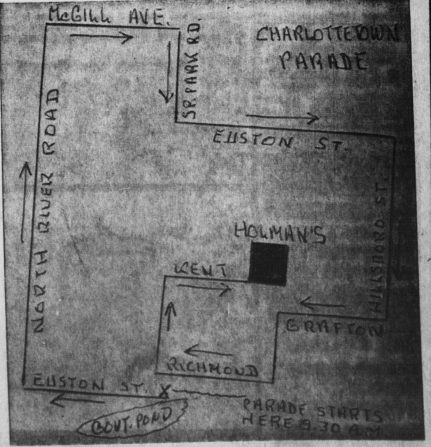 McGILL AVE.
CHARLOTTETOWN
PARADE
SP. PARK RD.
EUSTON ST.
NORTH RIVER ROAD
HILLSBORO ST.
HOLMAN'S
KENT
GRAFTON
RICHMOND
EUSTON ST. X
GOVT. POND
PARADE STARTS
HERE 9.30 A.M.